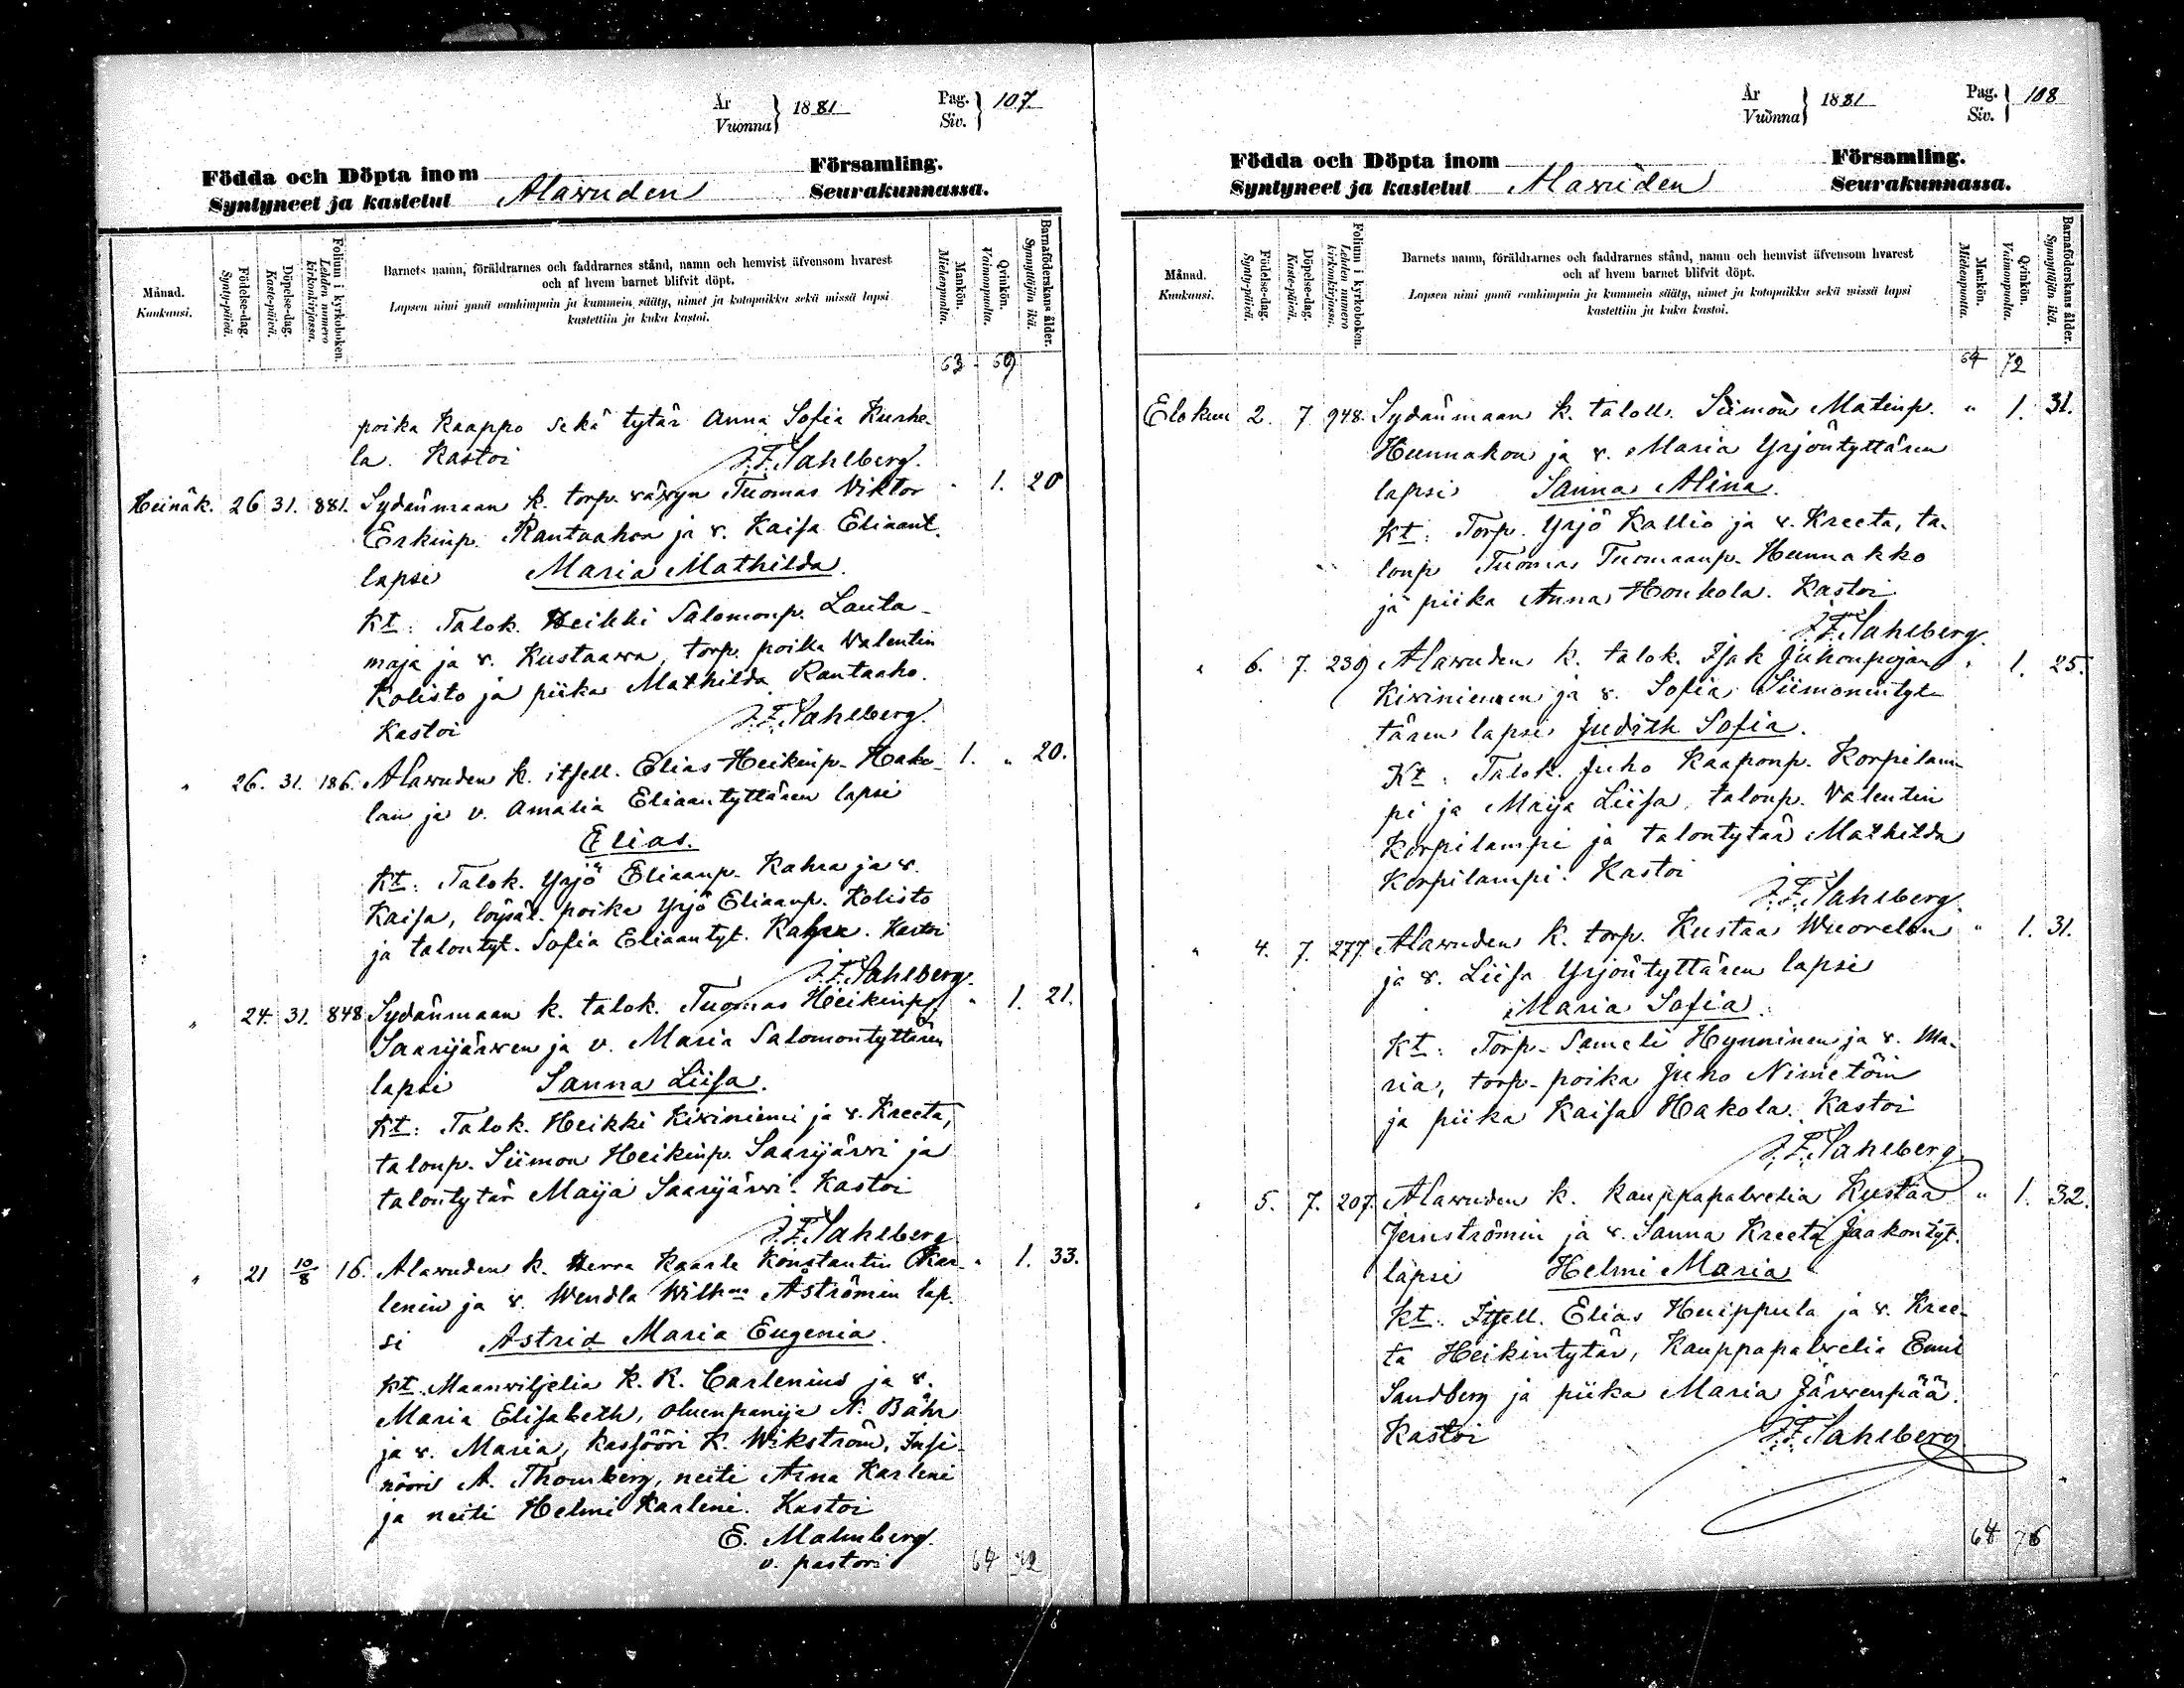 År
Vuonna
1881
Pag.
Siv.
107.
Födda och Döpta inom
Syntyneet ja kastetut
Alawuden
Församling.
Seurakunnassa.
Månad.
Kuukausi.
Födelse-dag.
Synty-päivä.
Döpelse-dag.
Kaste-päivä.
Folium i kyrkoboken.
Lehden numero kirkonkirjassa.
Barnets namn, föräldrarnes och faddrarnes stånd, namn och hemvist äfvensom hvarest
och af hvem barnet blifvit döpt.
Lapsen nimi ynnä vanhimpain ja kummein sääty, nimet ja kotopaikka sekä missä lapsi
kastettiin ja kuka kastoi.
Mankön.
Miehenpuolta.
Qvinkön.
Vaimonpuolta.
Barnaföderskans ålder.
Synnyttäjän ikä.
63 69
poika Kaappo sekä tytär Anna Sofia Kurhe-
la. Kastoi J.F. Sahlberg.
Heinäk. 26 31. 881. Sydänmaan k. torp. väwyn Tuomas Viktor " 1. 20
Erkinp. Rantaahon ja v. Kaisa Eliaant.
lapsi Maria Mathilda.
Kt: Talok. Heikki Salomonp. Lauta-
maja ja v. Kustaawa, torp. poika Valentin
Kolisto ja piika Mathilda Rantaaho.
Kastoi J.F. Sahlberg.
" 26. 31. 186. Alawuden k. itsell. Elias Heikinp. Hako- 1. " 20.
lan ja v. Amalia Eliaantyttären lapsi
Elias.
Kt: Talok. Yrjö Eliaanp. Kahra ja v.
Kaisa, löysäl. poika Yrjö Eliaanp. Kolisto
ja talontyt. Sofia Eliaantyt. Kahra. Kastoi
J.F. Sahlberg.
" 24. 31. 848 Sydänmaan k. talok. Tuomas Heikinpj. " 1. 21.
Saarijärwen ja v. Maria Salomontyttären
lapsi Sanna Liisa.
Kt: Talok. Heikki Kiviniemi ja v. Kreeta,
talonp. Siimon Heikinp. Saarijärwi ja
talontytär Maija Saarijärwi. Kastoi
J.F. Sahlberg
" 21 10/8 16. Alawuden k. Herra Kaarle Konstantin Kar- " 1. 33.
lenin ja v. Wendla Wilhna Åströmin lap-
si Astrid Maria Eugenia.
Kt. Maanviljelia K. R. Carlenius ja v.
Maria Elisabeth, oluenpanija N. Bähr
ja v. Maria, kassööri K. Wikström, Insi-
nööri A. Thomberg, neiti Anna Karleni
ja neiti Helmi Karleni. Kastoi
E. Malmberg.
v. pastori
64 72
År
Vuonna
1881
Pag.
Siv.
108
Födda och Döpta inom
Syntyneet ja kastetut
Alawuden
Församling.
Seurakunnassa.
Månad.
Kuukausi.
Födelse-dag.
Synty-päivä.
Döpelse-dag.
Kaste-päivä.
Folium i kyrkoboken.
Lehden numero kirkonkirjassa.
Barnets namn, föräldrarnes och faddrarnes stånd, namn och hemvist äfvensom hvarest
och af hvem barnet blifvit döpt.
Lapsen nimi ynnä vanhimpain ja kummein sääty, nimet ja kotopaikka sekä missä lapsi
kastettiin ja kuka kastoi.
Mankön.
Miehenpuolta.
Qvinkön.
Vaimonpuolta.
Barnaföderskans ålder.
Synnyttäjän ikä.
64 72
Elokuu 2. 7 948. Sydänmaan k. taloll. Siimon Matinp. " 1. 31.
Hunnakon ja v. Maria Yrjöntyttären
lapsi Sanna Alina.
Kt: Torp. Yrjö Kallio ja v. Kreeta, ta-
lonp. Tuomas Tuomaanp. Hunnakko
ja piika Anna Honkola. Kastoi
J.F. Sahlberg.
" 6. 7. 239 Alawuden k. talok. Isak Juhonpojan " 1. 25.
Kiviniemen ja v. Sofia Siimonintyt-
tären lapsi Judith Sofia.
Kt: Talok. Juho Kaaponp. Korpilam-
pi ja Maija Liisa, talonp. Valentin
Korpilampi ja talontytär Mathilda
Korpilampi. Kastoi
J.F. Sahlberg.
" 4. 7. 277. Alawuden k. torp. Kustaa Wuorelan " 1. 31.
ja v. Liisa Yrjöntyttären lapsi
Maria Sofia.
Kt: Torp. Sameli Hynninen ja v. Ma-
ria, torp. poika Juho Nimetöin
ja piika Kaisa Hakola. Kastoi
J.F. Sahlberg
" 5. 7. 207. Alawuden k. Kauppapalvelia Kustaa " 1. 32.
Jernströmin ja v. Sanna Kreeta Jaakontyt.
lapsi Helmi Maria
Kt. Itsell. Elias Huippula ja v. Kree-
ta Heikintytär, Kauppapalvelia Emil
Sandberg ja piika Maria Järwenpää.
Kastoi J.F. Sahlberg
64 76